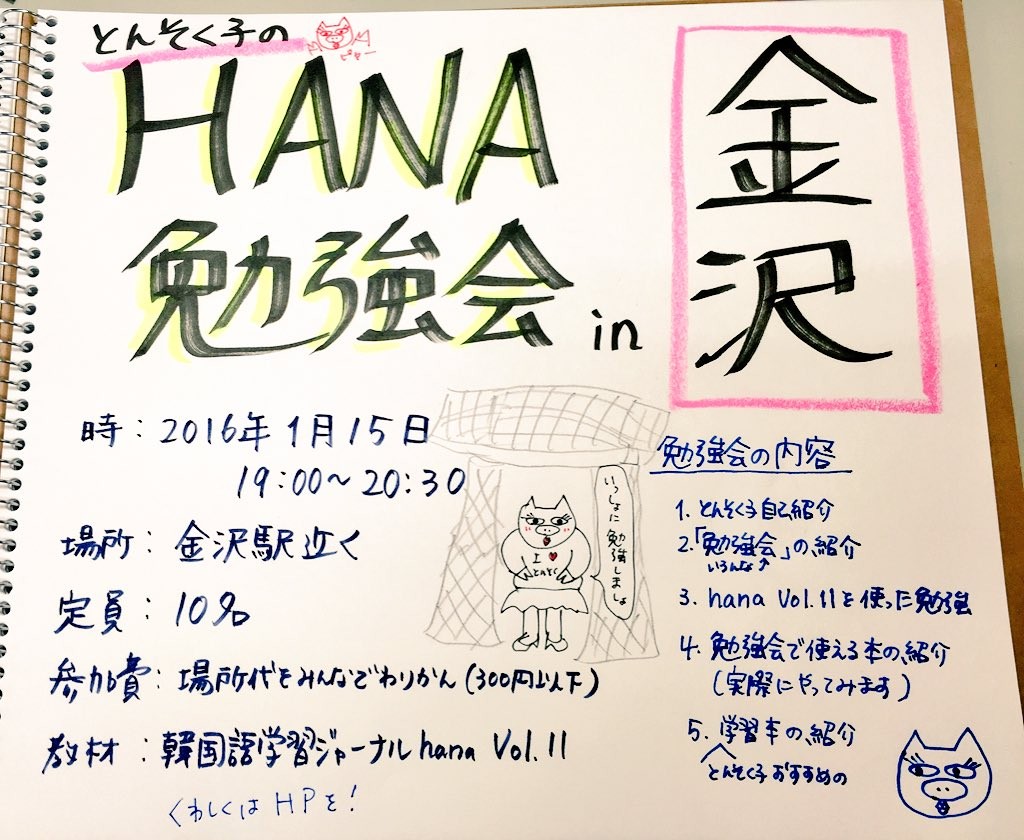 とんそく子の
ピギー
HANA
勉強会 in
金沢
時：2016年1月15日
19:00〜20:30
場所：金沢駅近く
定員：10名
参加費：場所代をみんなでわりかん(300円以下)
教材：韓国語学習ジャーナルhana Vol.11
くわしくはHPを！
いっしょに勉強しましょ
I ♥
とんそく
勉強会の内容
1. とんそく子自己紹介
2.「勉強会」の紹介
いろんな↑
3. hana Vol.11を使った勉強
4. 勉強会で使える本の紹介
(実際にやってみます)
5. 学習本の紹介
とんそく子おすすめの